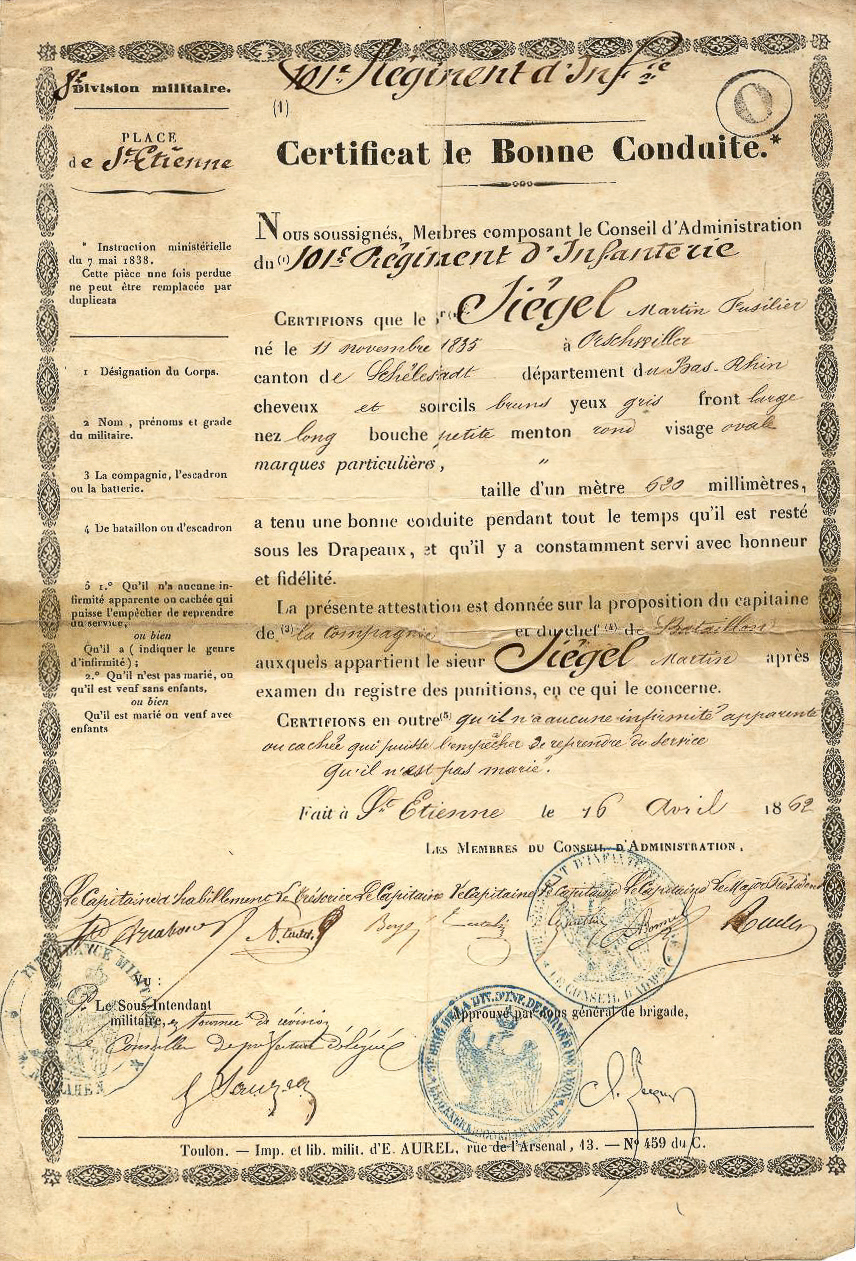 101e Régiment d'Infie
8e Division militaire.
(1)
O
PLACE
de St Etienne
Certificat de Bonne Conduite.*
* Instruction ministérielle
du 7 mai 1838.
Cette pièce une fois perdue
ne peut être remplacée par
duplicata
1 Désignation du Corps.
2 Nom, prénoms et grade
du militaire.
3 La compagnie, l'escadron
ou la batterie.
4 De bataillon ou d'escadron
5 1.° Qu'il n'a aucune in-
firmité apparente ou cachée qui
puisse l'empêcher de reprendre
du service,
ou bien
Qu'il a (indiquer le genre
d'infirmité);
2.° Qu'il n'est pas marié, ou
qu'il est veuf sans enfants,
ou bien
Qu'il est marié ou veuf avec
enfants
Nous soussignés, Membres composant le Conseil d'Administration
du (1) 101e Régiment d'Infanterie
CERTIFIONS que le Sr (2) Siégel Martin Fusilier
né le 11 novembre 1835 à Orschwiller
canton de Schélestadt département du Bas-Rhin
cheveux et sourcils bruns yeux gris front large
nez long bouche petite menton rond visage ovale
marques particulières, "
taille d'un mètre 620 millimètres,
a tenu une bonne conduite pendant tout le temps qu'il est resté
sous les Drapeaux, et qu'il y a constamment servi avec honneur
et fidélité.
La présente attestation est donnée sur la proposition du capitaine
de (3) la Compagnie et du chef (4) de Bataillon
auxquels appartient le sieur Siégel Martin après
examen du registre des punitions, en ce qui le concerne.
CERTIFIONS en outre (5) qu'il n'a aucune infirmité apparente
ou cachée qui puisse l'empêcher de reprendre du service
qu'il n'est pas marié".
Fait à St Etienne le 16 Avril 1862
LES MEMBRES DU CONSEIL D'ADMINISTRATION,
Le Capitaine d'habillement Le Trésorier Le Capitaine Le Capitaine Le Capitaine Le Capitaine Le Major Président
RÉGIMENT D'INFANTERIE
LE CONSEIL D'ADMON
INTENDANCE MILITAIRE
Vu :
Pr Le Sous-Intendant
militaire, en tournée de révision
Le Conseiller de préfecture délégué
Approuvé par nous général de brigade,
Toulon. — Imp. et lib. milit. d'E. AUREL, rue de l'Arsenal, 13. — No 459 du C.